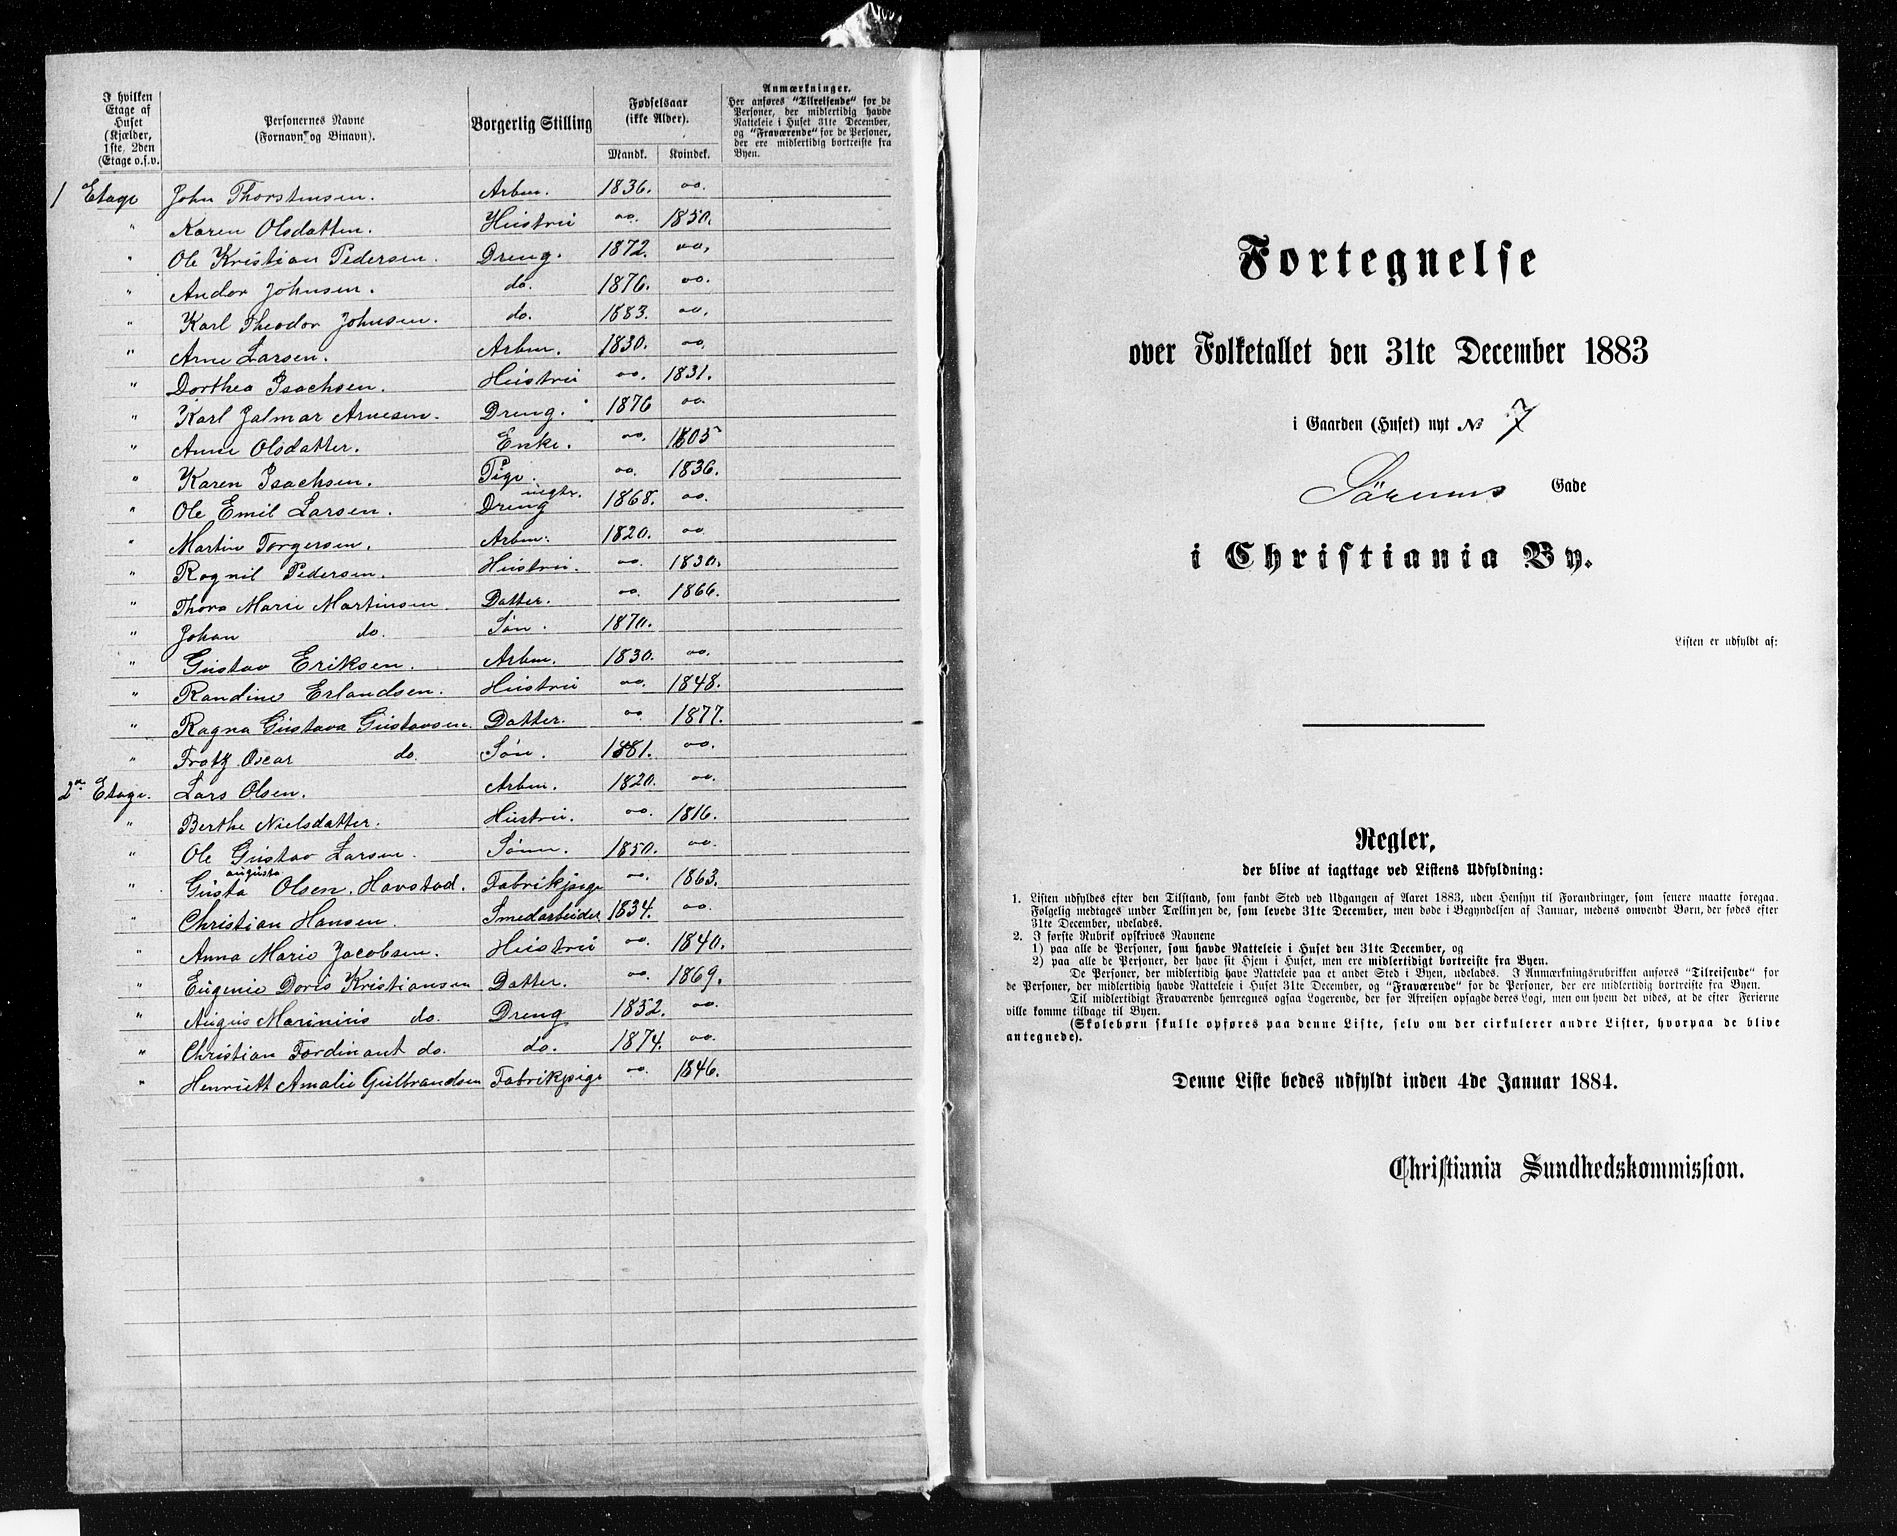 I hvilken
Etage af
Huset
(Kjælder,
1ste, 2den
Etage o.s.v.
Personernes Navne
(Fornavn og Binavn).
Borgerlig Stilling
Fødselsaar
(ikke Alder).
Mandk. Kvindek.
Anmærkninger.
Her anføres "Tilreisende" for de
Personer, der midlertidig havde
Natteleie i Huset 31te December,
og "Fraværende" for de Personer,
der ere midlertidig bortreiste fra
Byen.
1 Etage John Thorstensen. Arbm. 1836. oo.
" Karen Olsdatten. Hustru oo. 1850.
" Ole Kristian Pedersen. Dreng. 1872. oo.
" Andor Johnsen. do. 1876. oo.
" Karl Theodor Johnsen. do. 1883. oo.
" Arne Larsen. Arbm. 1830. oo.
" Dorthea Isachsen. Hustru oo. 1831.
" Karl Jalmar Arnesen. Dreng. 1876 oo.
" Anne Olsdatter. Enke. oo. 1805
" Karen Isachsen. Pige. oo. 1836.
" Ole Emil Larsen. Dreng 1868. oo.
" Martin Torgersen. Arbm. 1820. oo.
" Ragnil Pedersen. Hustru. oo. 1830.
" Thora Marie Martinsen Datter. oo. 1866.
" Johan do. Søn. 1870.
" Gustav Eriksen. Arbm. 1830. oo.
" Randine Erlandsen. Hustru oo. 1848.
" Ragna Gustava Gustavsen. Datter. oo. 1877.
" Fratz Oscar do. Søn. 1881. oo.
2n Etage. Lars Olsen. Arbm. 1820. oo.
" Berthe Nielsdatter. Hustru. oo. 1816.
" Ole Gustav Larsen. Sønn. 1850. oo.
augusta
" Gusta Olsen. Havstad. Fabrikpige oo. 1863.
" Christian Hansen. Smedarbeider 1834. oo.
" Anna Marie Jacobsen. Hustru oo. 1840.
" Eugenie Doris Kristiansen Datter. oo. 1869.
" Augus Marinius do. Dreng 1852. oo.
" Christian Fordinant do. do. 1874. oo.
" Henriett Amalie Gulbrandsen Fabrikpige oo. 1846.
Fortegnelse
over Folketallet den 31te December 1883
i Gaarden (Huset) nyt № 7
Sørums Gade
i Christiania By.
Listen er udfyldt af:
Regler,
der blive at iagttage ved Listens Udfyldning:
1. Listen udfyldes efter den Tilstand, som fandt Sted ved Udgangen af Aaret 1883, uden Hensyn til Forandringer, som senere maatte foregaa.
Følgelig medtages under Tællingen de, som levede 31te December, men døde i Begyndelsen af Januar, medens omvendt Børn, der fødes efter
31te December, udelades.
2. I første Rubrik opskrives Navnene
1) paa alle de Personer, som havde Natteleie i Huset den 31te December, og
2) paa alle de Personer, der have sit Hjem i Huset, men ere midlertidigt bortreiste fra Byen.
De Personer, der midlertidig have Natteleie paa et andet Sted i Byen, udelades. I Anmærkningsrubrikken anføres "Tilreisende" for
de Personer, der midlertidig havde Natteleie i Huset 31te December, og "Fraværende" for de Personer, der ere midlertidig bortreiste fra Byen.
Til midlertidigt Fraværende henregnes ogsaa Logerende, der før Afreisen opsagde deres Logi, men om hvem det vides, at de efter Ferierne
ville komme tilbage til Byen.
(Skolebørn skulle opføres paa denne Liste, selv om der cirkulerer andre Lister, hvorpaa de blive
antegnede).
Denne Liste bedes udfyldt inden 4de Januar 1884.
Christiania Sundhedskommission.